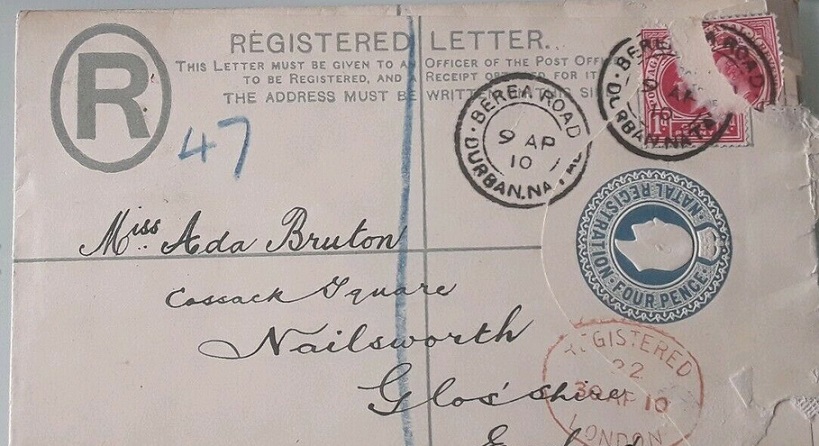 R
REGISTERED LETTER.
THIS LETTER MUST BE GIVEN TO AN OFFICER OF THE POST
TO BE REGISTERED, AND A RECEIPT FOR IT
THE ADDRESS MUST BE
47
BEREA ROAD
9 AP
10
DURBAN.
BEREA ROAD
NATAL REGISTRATION · FOUR PENCE ·
Miss. Ada Bruton
Cossack Square
Nailsworth
Glos'shire
REGISTERED
22
30 AP 10
LONDON